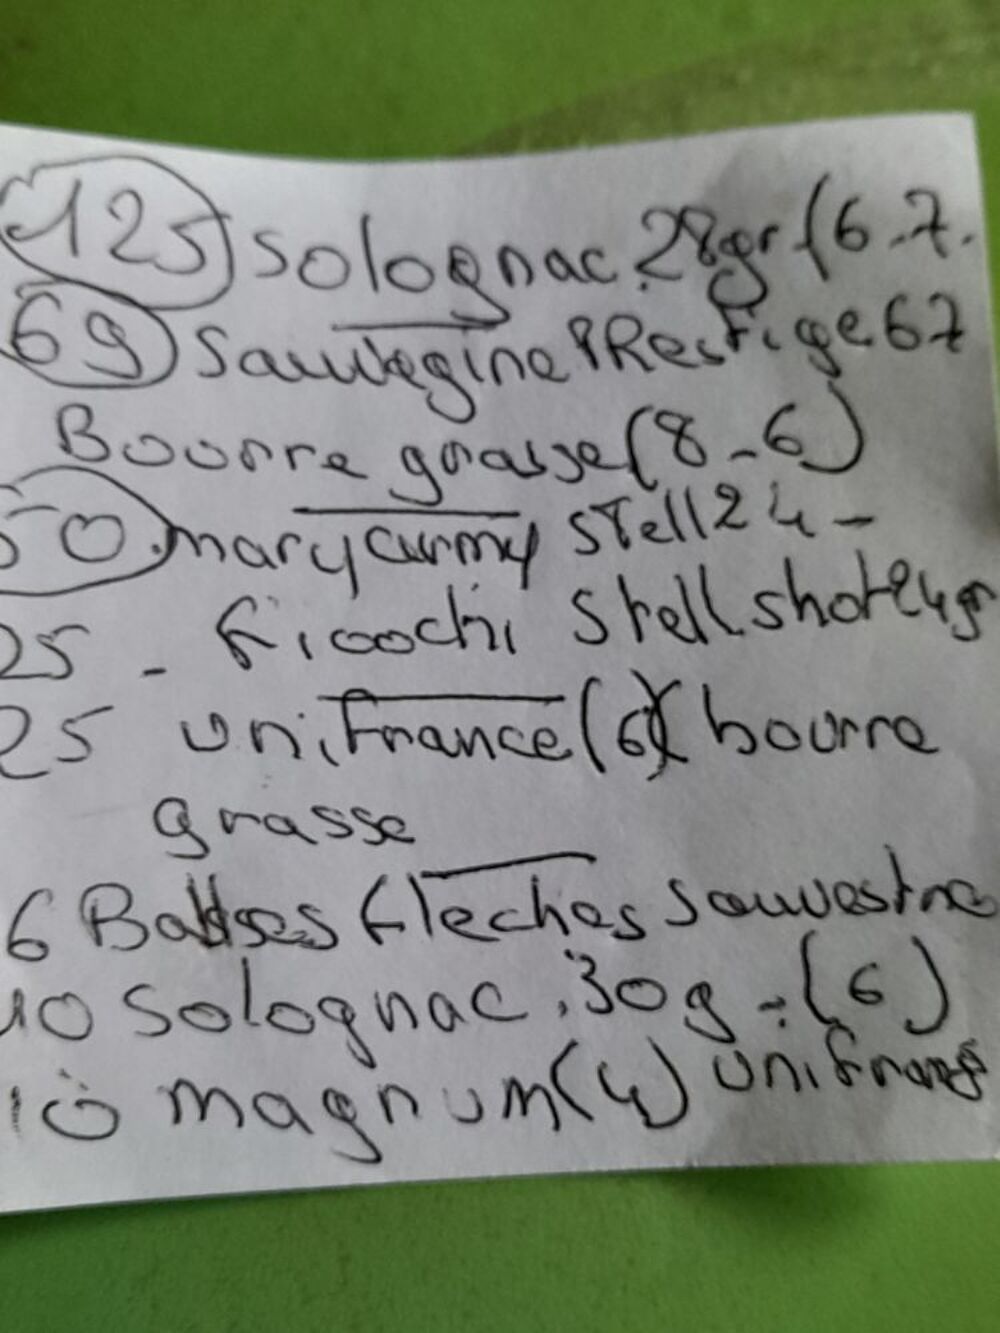 125 Solognac 28gr (6.7.
69 Sauvegine PRestige 67
Bourre grasse (8-6)
50. mary army stell 24-
25 - Ricochi Stell shot 24gr
25 unifrance (6) (bourre
grasse
6 Balles fleches sauvestre
10 Solognac. 30g - (6)
10 magnum (4) unifrance